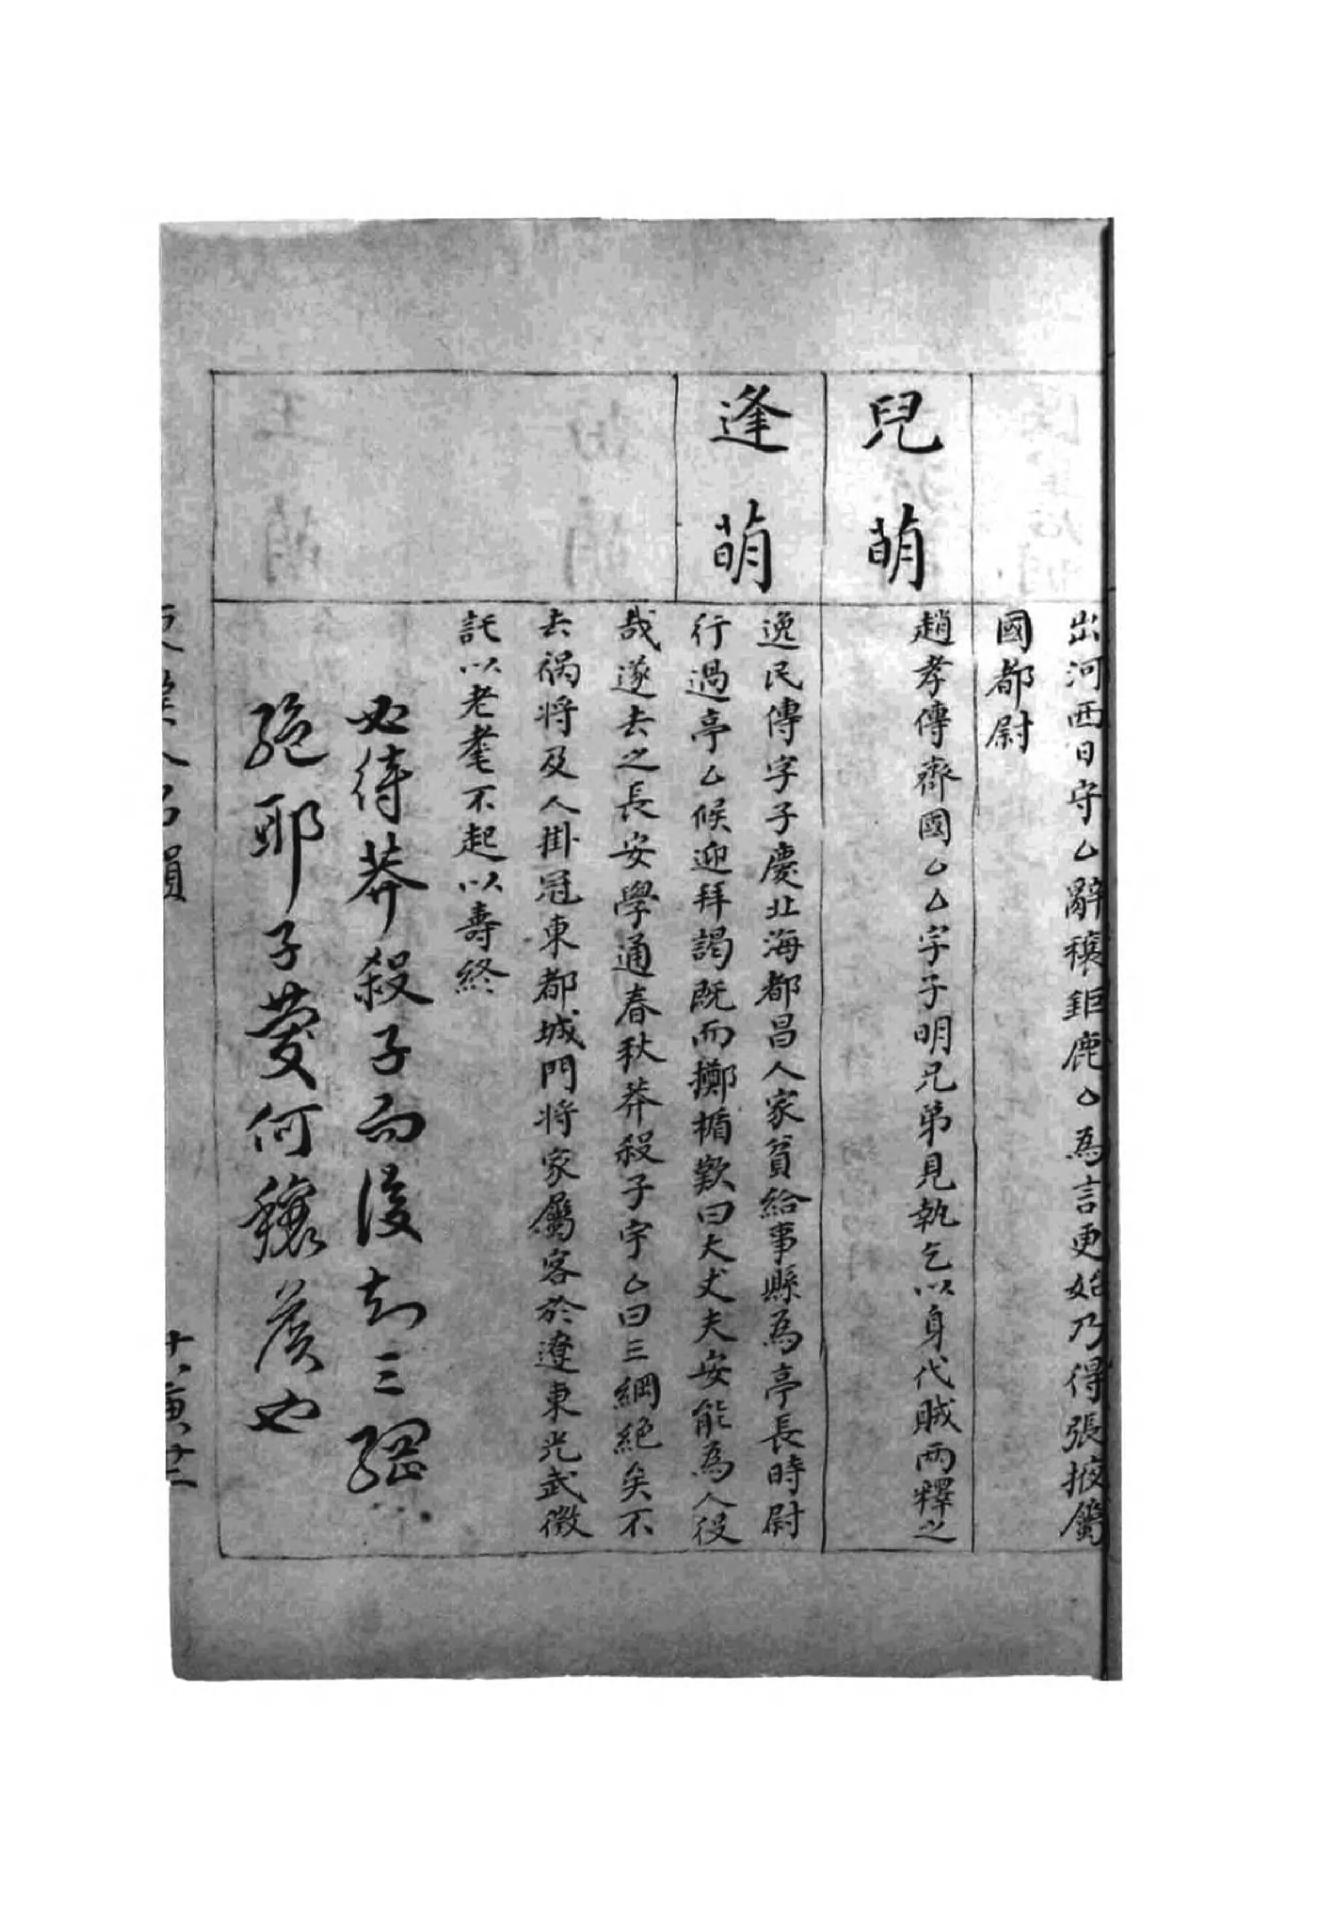 出河西日守厶辭穰鉅鹿厶為言更始乃得張掖屬
國都尉
兒萌
趙孝傳齊國厶厶字子明兄弟見執乞以身代賊兩釋之
逢萌
逸民傳字子慶北海都昌人家貧給事縣為亭長時尉
行過亭厶候迎拜謁既而擲楯歎曰大丈夫安能為人役
哉遂去之長安學通春秋莽殺子宇厶曰三綱絕矣不
去禍將及人掛冠東都城門將家屬客於遼東光武徵
託以老耄不起以壽終
必待莽殺子而後知三綱
絕耶子慶何穰矦也